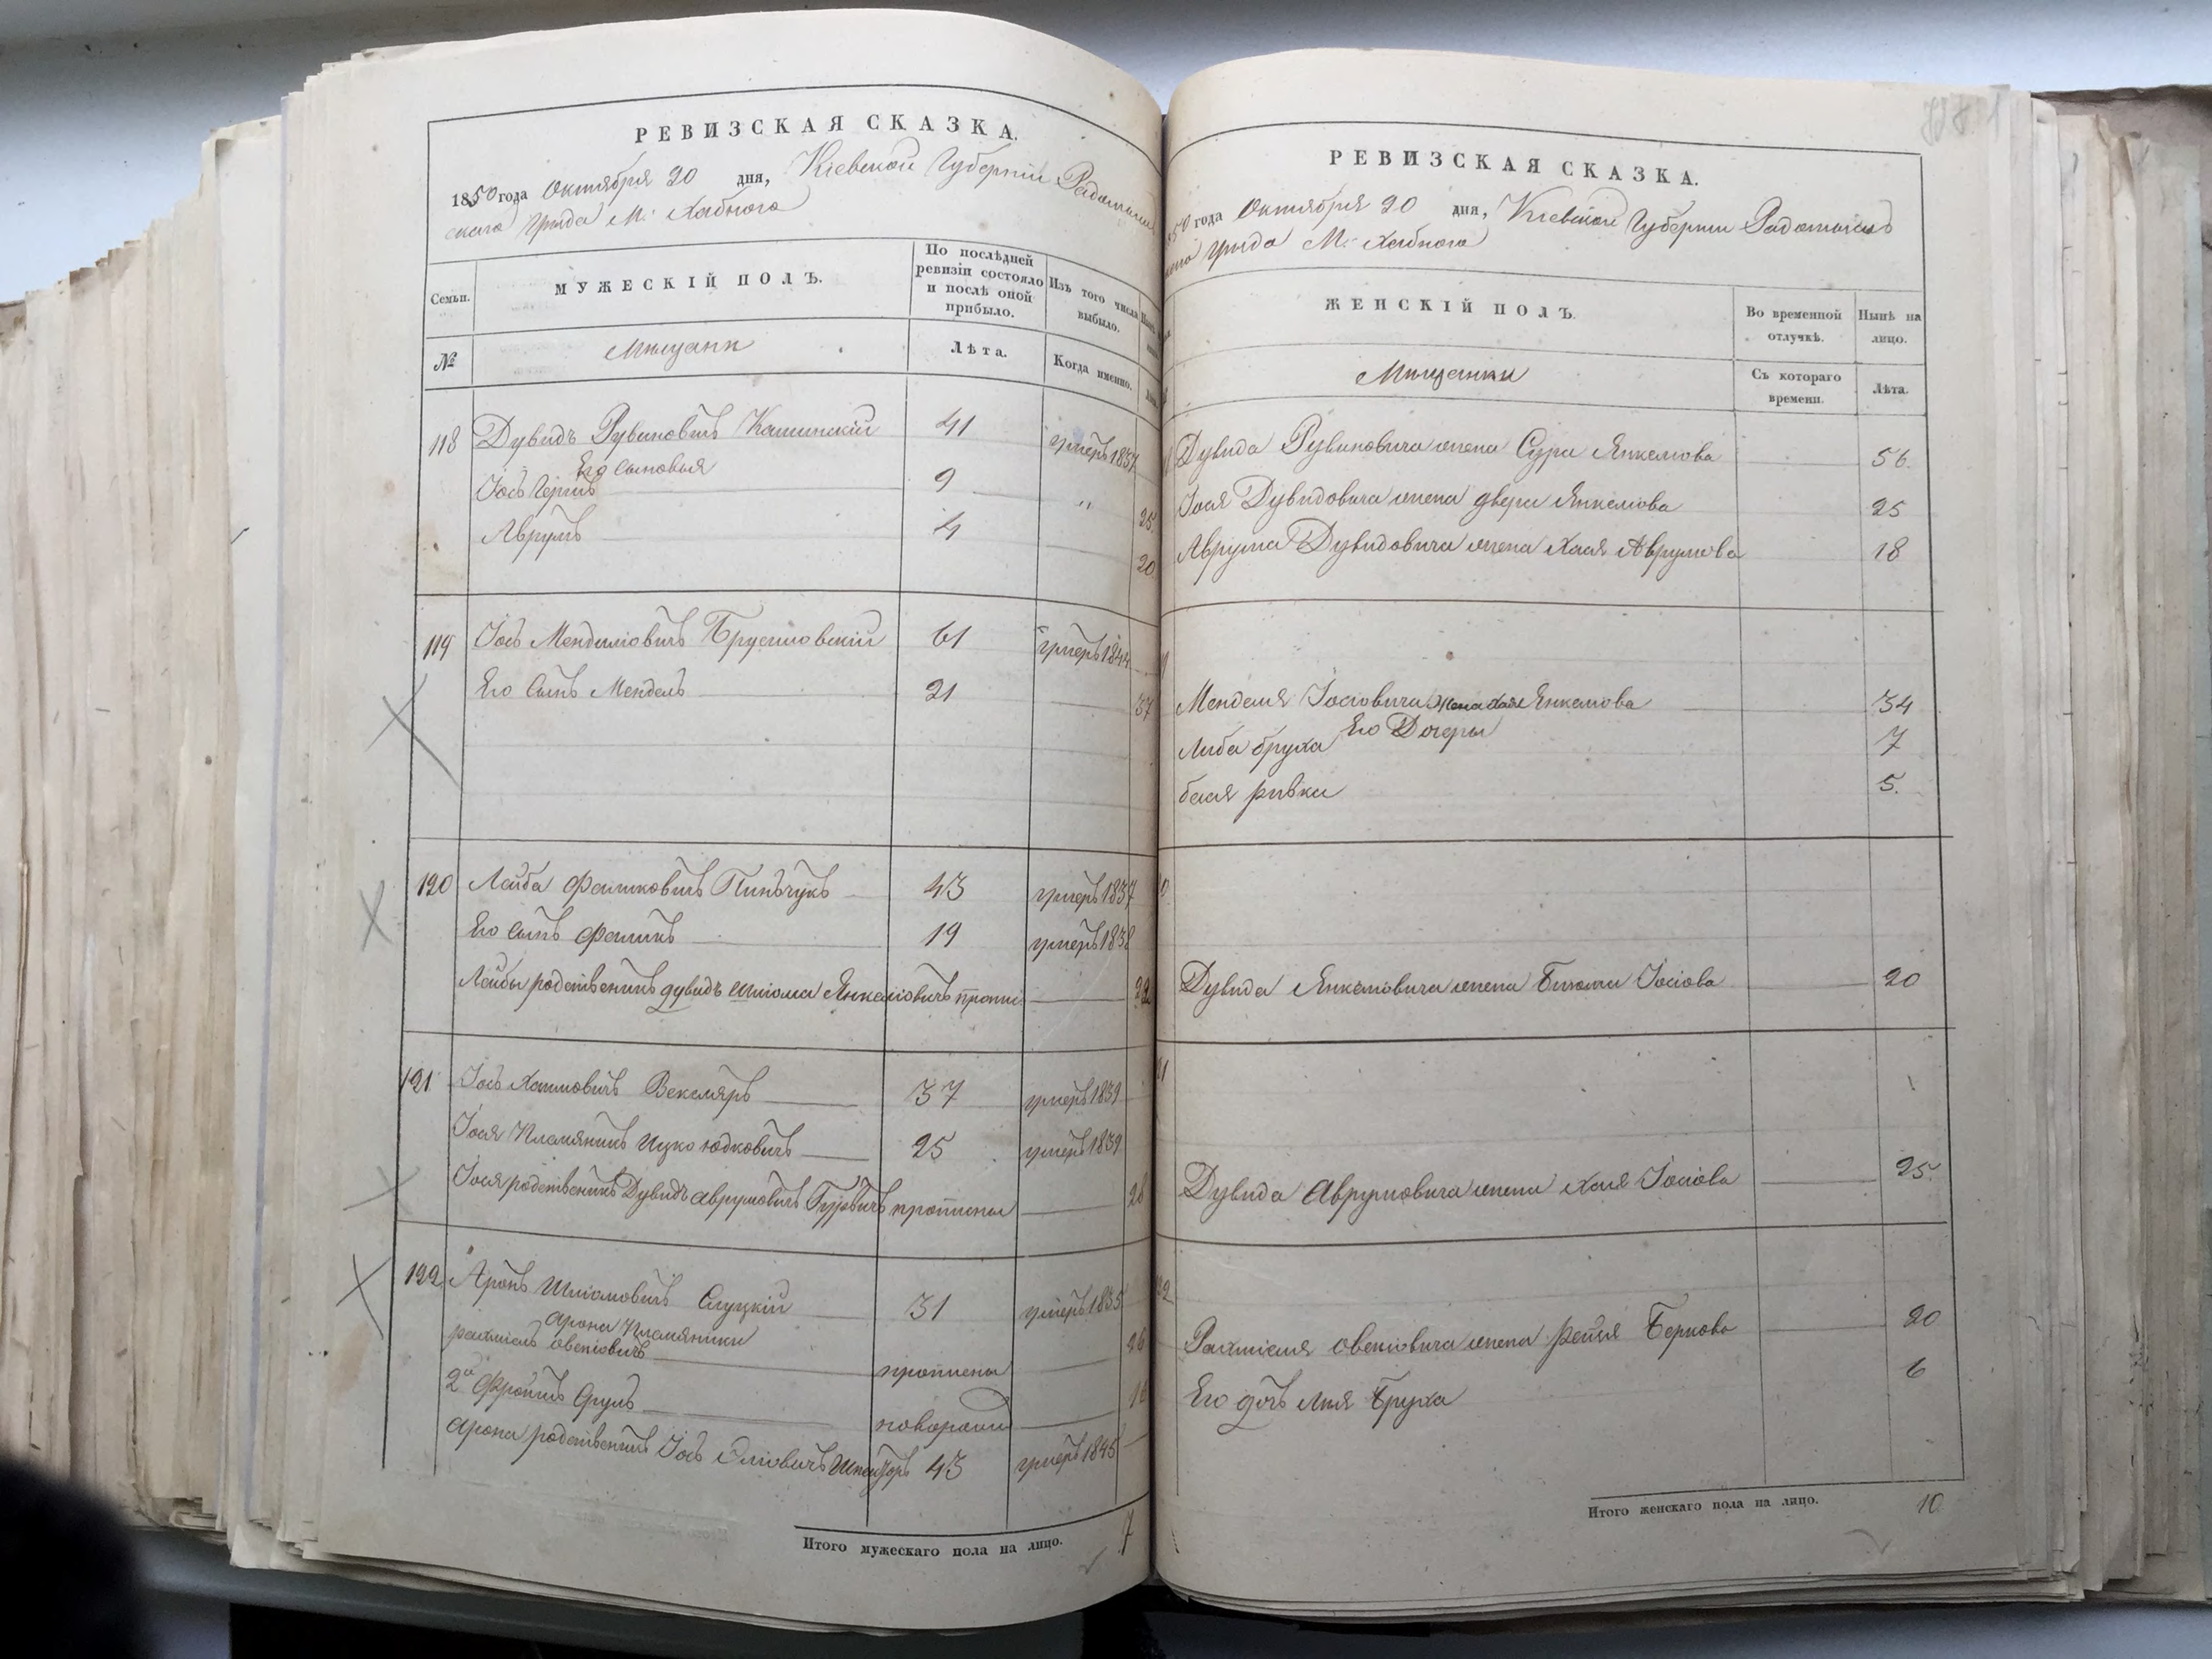 РЕВИЗСКАЯ СКАЗКА.
1850 года Октября 20 дня, Кіевской Губерніи Радомысль
скаго уѣзда М. Хабнаго
Семьи.
МУЖЕСКІЙ ПОЛЪ.
По послѣдней ревизіи состояло и послѣ оной прибыло.
Изъ того числа выбыло.
№
Мѣщане
Лѣта.
Когда именно.
118 Дувидъ Рувиновичъ Каминскій 41 умеръ 1837
Его сыновья
Іось Гершъ 9 " 25
Аврумъ 4 20
119 Іось Менделіовичъ Брусиловскій 61 умеръ 1844
Его сынъ Мендель 21 37
120 Лейба Фаликовичъ Пинчукъ 43 умеръ 1837
Его сынъ Фаликъ 19 умеръ 1838
Лейбы родственикъ дувидъ шліома Янкеліовичъ пропис 22
121 Іось Хаимовичъ Векслярь 37 умеръ 1839
Іося Племяникъ Ицко юдковичъ 25 умеръ 1839
Іося родственикъ Дувидъ аврумовичъ Гуровичъ прописны 28
122 Аронъ Шліомовичъ Слуцкій 31 умеръ 1835
Арона Племяники
рахміель овсеіовичъ прописны 26
2й Фроимъ Срулъ новорожд 16
арона родственикъ Іось Эліовичъ 43 умеръ 1845
Итого мужескаго пола на лицо. 7
РЕВИЗСКАЯ СКАЗКА.
50 года Октября 20 дня, Кіевской Губерніи Радомысль
скаго уѣзда М. Хабнаго
ЖЕНСКІЙ ПОЛЪ.
Во временной отлучкѣ.
Нынѣ на лицо.
Мѣщанки
Съ котораго времени.
Лѣта.
Дувида Рувиновича жена Сура Янкелюва 56.
Іося Дувидовича жена двера Янкелюва 25
Аврума Дувидовича жена Хася Аврумова 18
Менделя Іосіовича Жена Хая Янкелюва 34
Его Дочеры
Либа бруха 7
бася ривка 5.
Дувида Янкелювича жена Бейла Іосіова 20
Дувида Аврумовича жена Хая Іосіова 25.
Рахміеля овсеіовича жена рейзя Беркова 20
Его дочъ Лия Бруха 6
Итого женскаго пола на лицо. 10